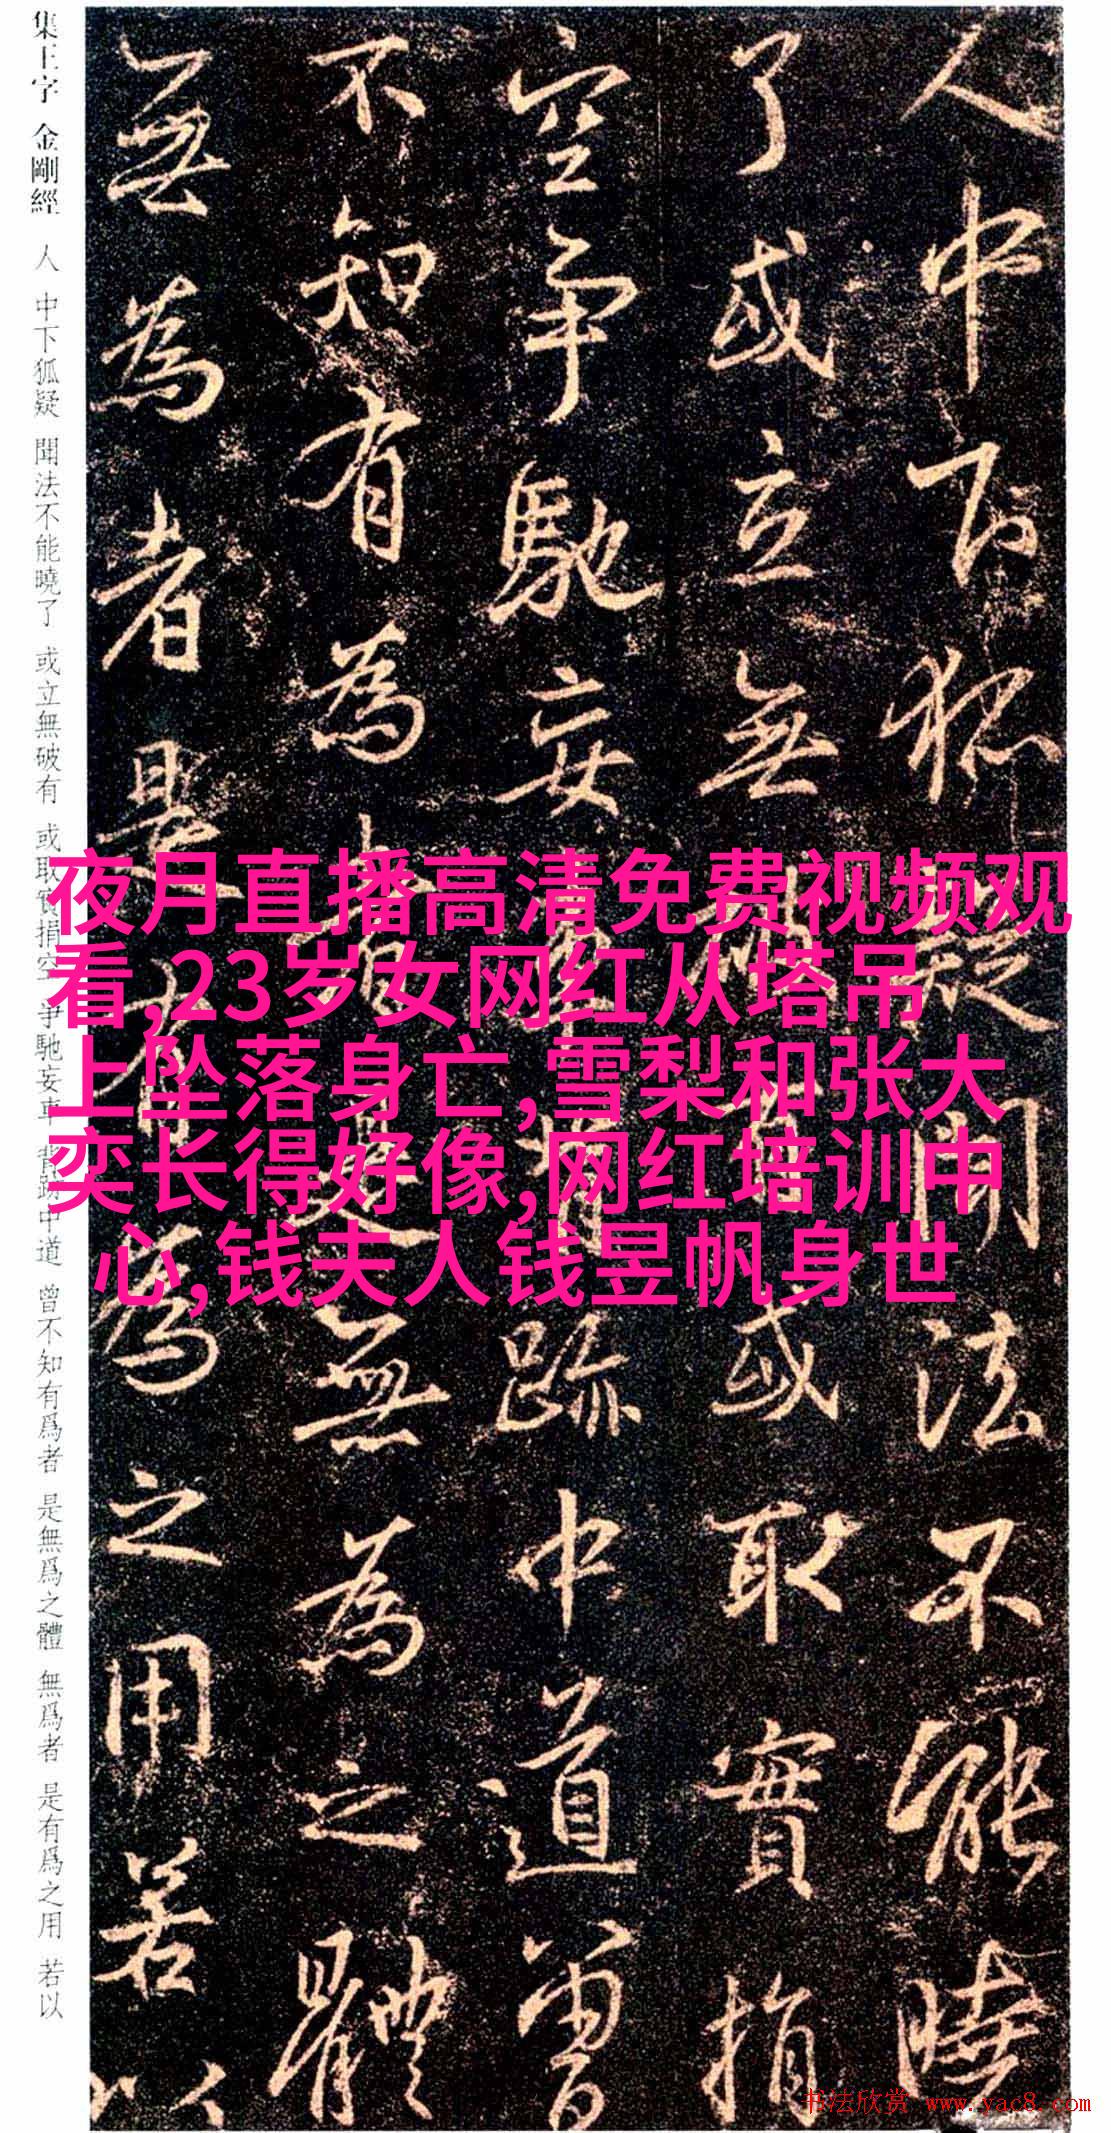 人中下狐疑聞法不能曉
了或立無破有或取實捐
空爭馳妄車背跡中道曾
不知有為者是無為之體
無為者是有為之用若以
集王字 金剛經 人 中下狐疑 聞法不能曉了 或立無破有 或取實捐空 爭馳妄車 背跡中道 曾不知有爲者 是無爲之體 無爲者 是有爲之用 若以
夜月直播高清免费视频观
看,23岁女网红从塔吊
上坠落身亡,雪梨和张大
奕长得好像,网红培训中
心,钱夫人钱昱帆身世
书法欣赏 www.yac8.com